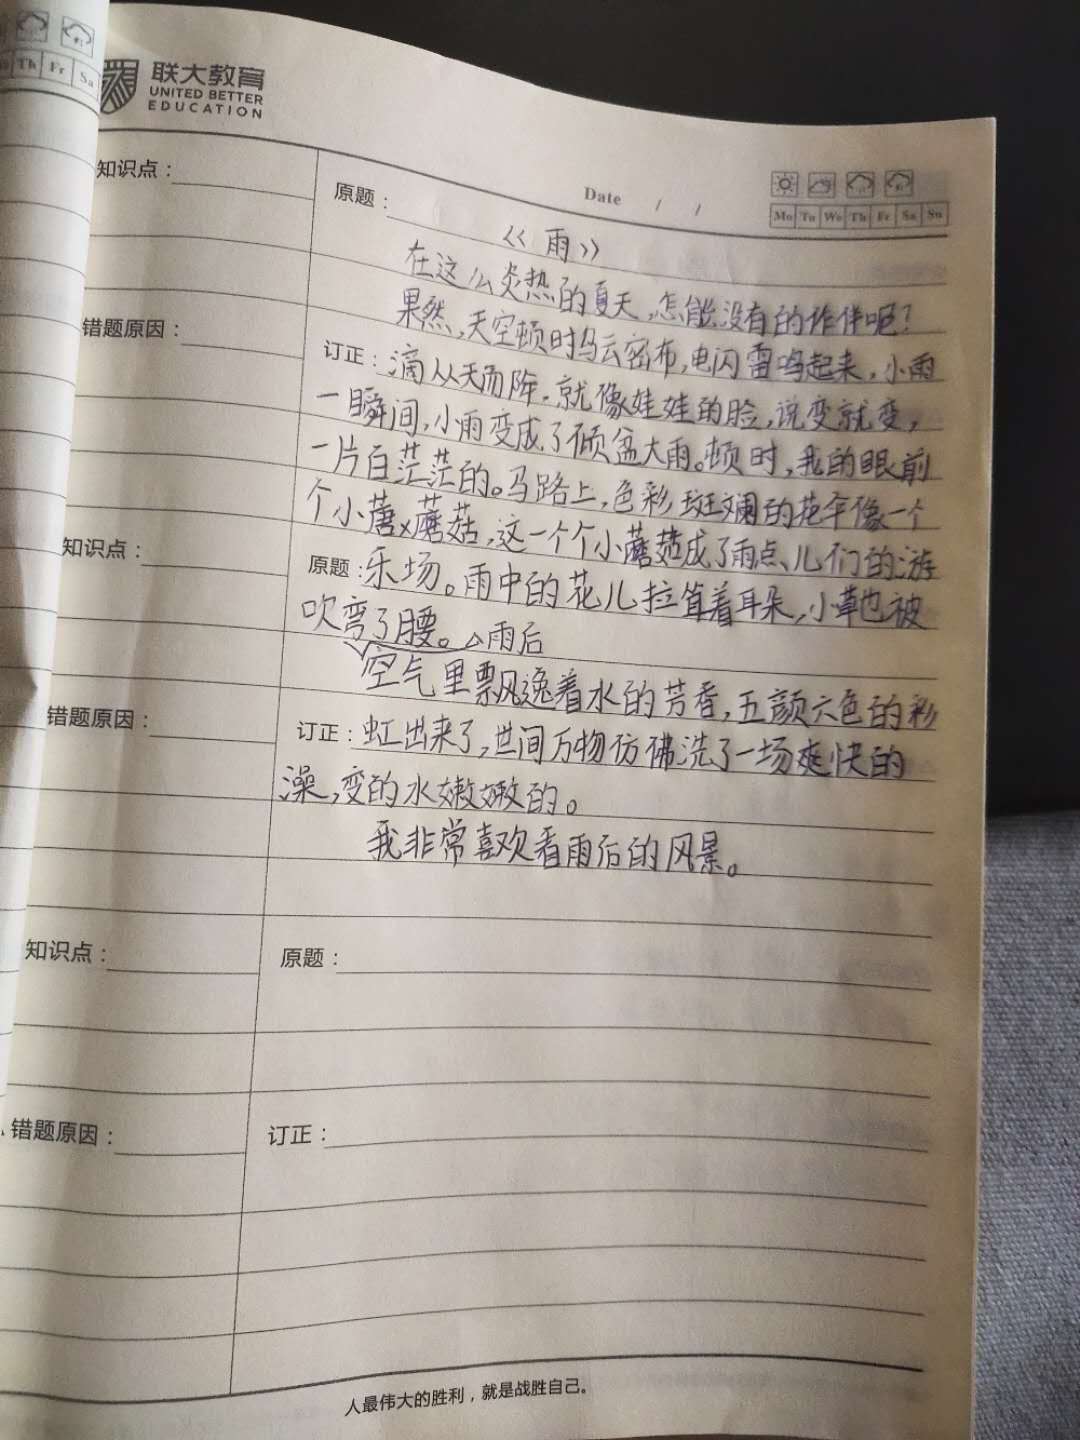 Th Fr Sa
联大教育
UNITED BETTER
EDUCATION
Date / /
Mo Tu We Th Fr Sa Su
知识点：
原题：
《雨》
在这么炎热的夏天,怎能没有的作伴呢?
果然,天空顿时乌云密布,电闪雷鸣起来,小雨
错题原因：
订正：滴从天而降。就像娃娃的脸,说变就变,
一瞬间,小雨变成了倾盆大雨。顿时,我的眼前
一片白茫茫的。马路上,色彩斑斓的花伞像一个
个小蘑菇,这一个个小蘑菇成了雨点儿们的游
知识点：
原题：乐场。雨中的花儿拉耸着耳朵,小草也被
吹弯了腰。雨后
空气里飘逸着水的芳香,五颜六色的彩
错题原因：
订正：虹出来了,世间万物仿佛洗了一场爽快的
澡,变的水嫩嫩的。
我非常喜欢看雨后的风景。
知识点：
原题：
错题原因：
订正：
人最伟大的胜利，就是战胜自己。